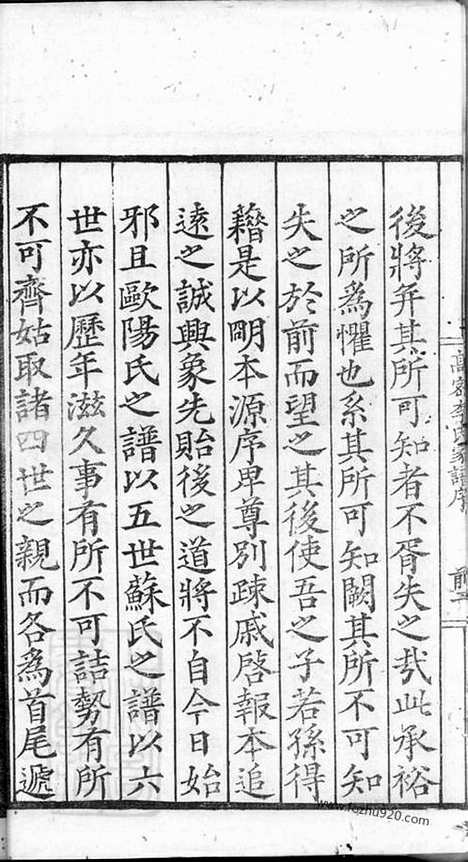 後將并其所可知者不胥失之哉此承裕
之所為懼也系其所可知闕其所不可知
失之於前而望之其後使吾之子若孫得
藉是以明本源序卑尊別疎戚啓報本追
遠之誠興象先貽後之道將不自今日始
邪且歐陽氏之譜以五世蘇氏之譜以六
世亦以歷年滋久事有所不可詰勢有所
不可齊姑取諸四世之親而各為首尾遞
高密李氏家譜序
www.fozhu920.com